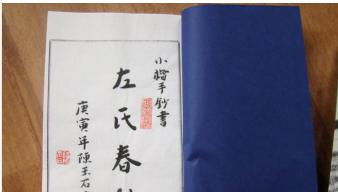 小楷手鈔書
左氏春
庚寅年陳玉石